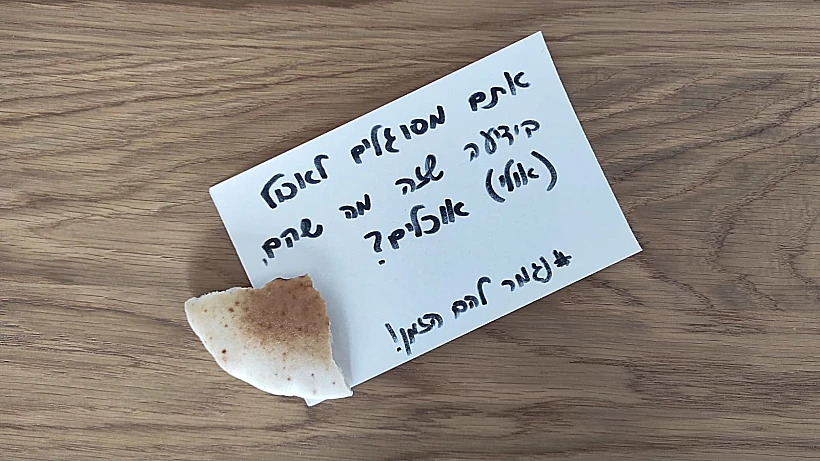 אתם מסוגלים לאכול
בידיעה שזה מה שהם,
(אולי) אוכלים?
#נגמר להם הזמן!